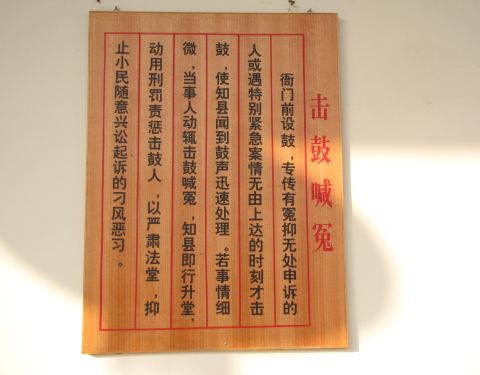 击鼓喊冤
衙门前设鼓，专传有冤抑无处申诉的
人或遇特别紧急案情无由上达的时刻才击
鼓，使知县闻到鼓声迅速处理。若事情细
微，当事人动辄击鼓喊冤，知县即行升堂，
动用刑罚责惩击鼓人，以严肃法堂，抑
止小民随意兴讼起诉的刁风恶习。